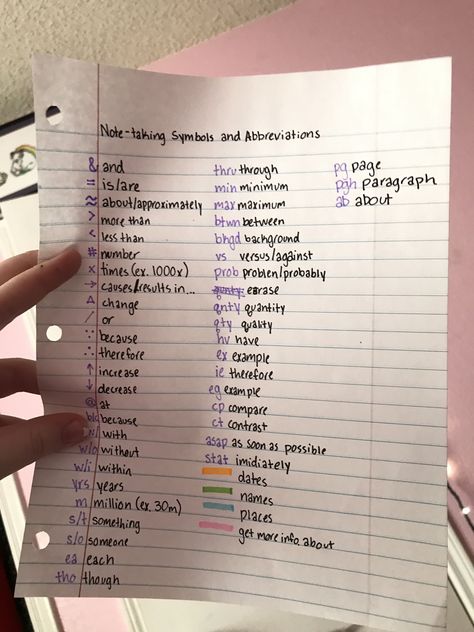 Note-taking Symbols and Abbreviations
& and
= is/are
≈ about/approximately
> more than
< less than
# number
x times (ex. 1000x)
→ causes/results in...
Δ change
/ or
∵ because
∴ therefore
↑ increase
↓ decrease
@ at
b/c because
w/ with
w/o without
w/i within
yrs years
m million (ex. 30m)
s/t something
s/o someone
ea each
tho though
thru through
min minimum
max maximum
btwn between
bkgd background
vs versus/against
prob problen/probably
erase
qnty quantity
qty quality
hv have
ex example
ie therefore
eg example
cp compare
ct contrast
asap as soon as possible
stat imidiately
dates
names
places
get more info. about
pg page
pgh paragraph
ab about